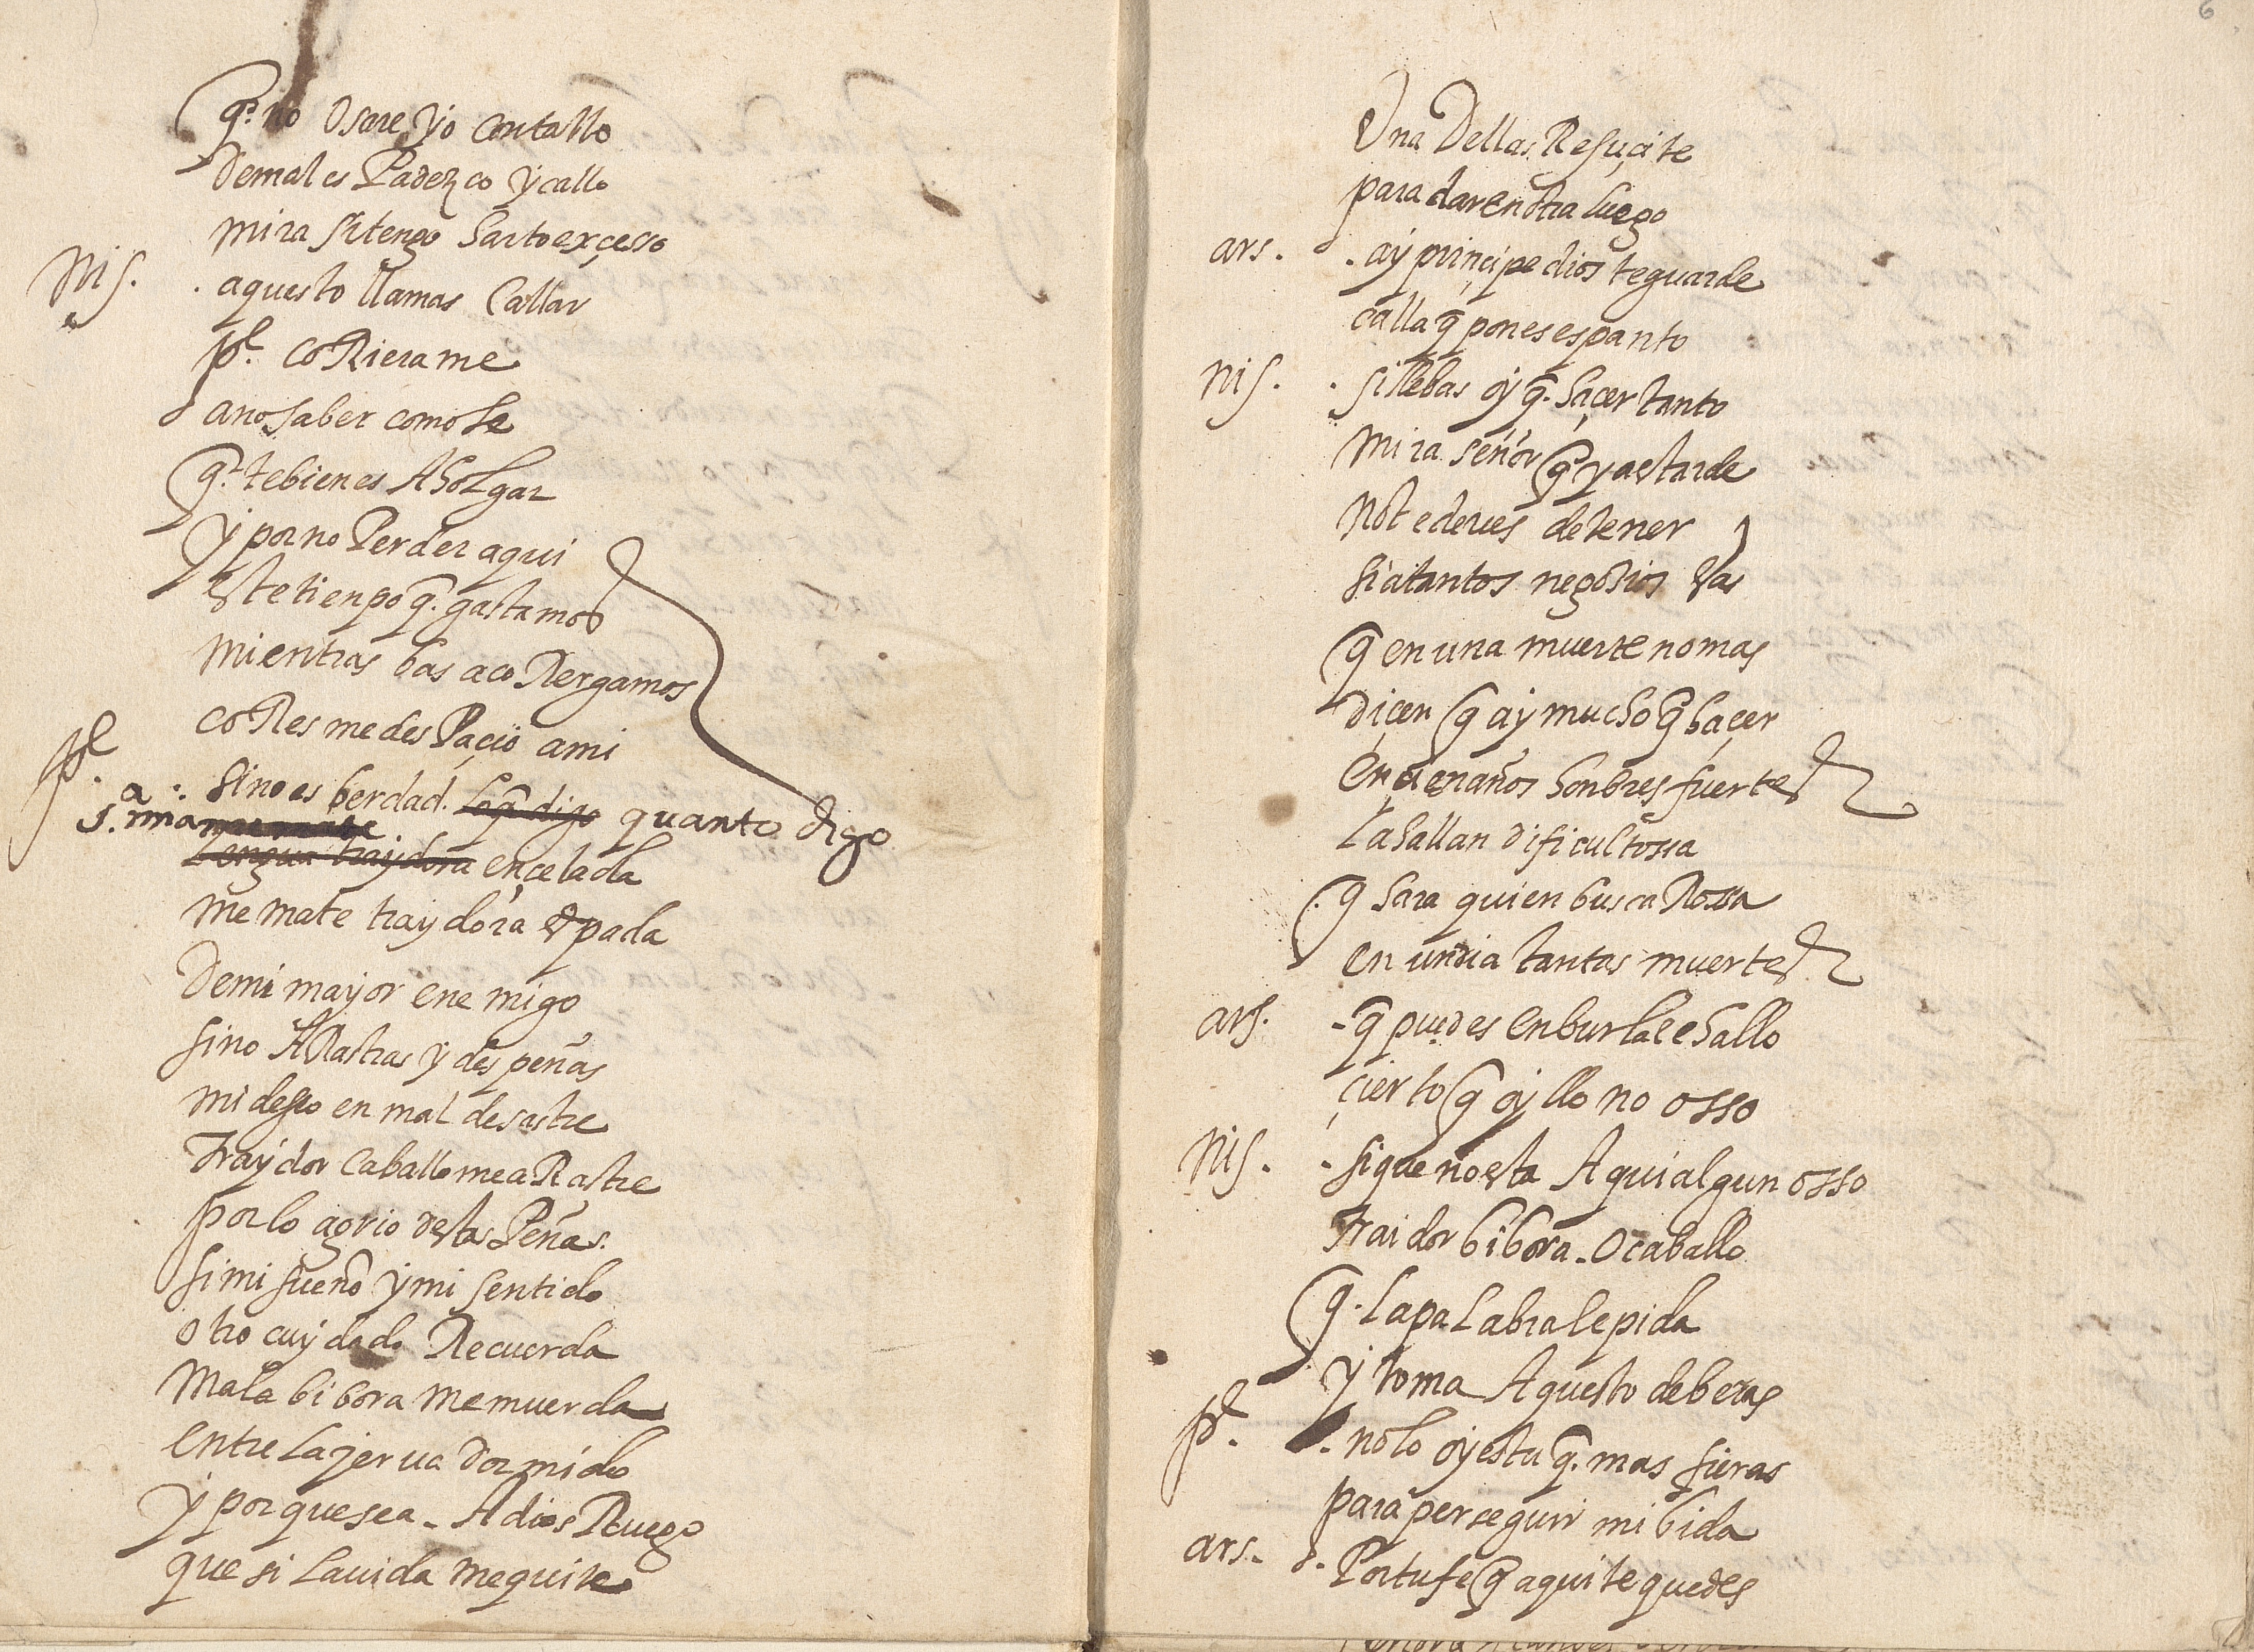 q̃ no osare yo contallo
de males Padezco y callo
mira si tengo harto exçesso
nis. . aquesto llamas Callar
pl. coRierame
a no saber como se
q̃ te bienes A holgar
y por no Perder aqui
este tienpo q̃. gastamos
mientras bas a coRer gamos
coRes me desPaçio a mi
pl. . si no es berdad. lo q̃ digo quanto digo
s.ª mia me mate
Lengua traydora en çelada
me mate traydora espada
De mi mayor enemigo
si no ARastras y despeñas
mi deseo en mal desastre
traydor Caballo me aRastre
por lo agrio destas Peñas.
si mi sueño y mi sentido
otro cuydado Recuerda
Mala bibora me muerda
entre la jerua dormido
y porque sea - A dios Ruego
que si la uida me quite
6
Una Dellas Resuçite
para dar en otra luego
ars. . ay prinçipe dios te guarde
calla q̃ pones espanto
nis. . si llebas oy q̃. haçer tanto
mira señor q̃ ya es tarde
no te deues detener
si a tantos negosios bas
q̃ en una muerte no mas
diçen q̃ ay mucho q̃ haçer
en çien años honbres fuertes
la hallan dificultossa
q̃ hara quien busca Rossa
en un dia tantas muertes
ars. - q̃ puedes en burla le hallo
çierto q̃ oyllo no osso
nis. - si que no esta Aqui algun osso
traidor bibora - o caballo
q̃. la palabra le pida
y toma Aquesto de beras
pl. . no lo oyes tu q̃. mas fieras
para perseguir mi bida
ars. . Por tu fe q̃ aqui te quedes